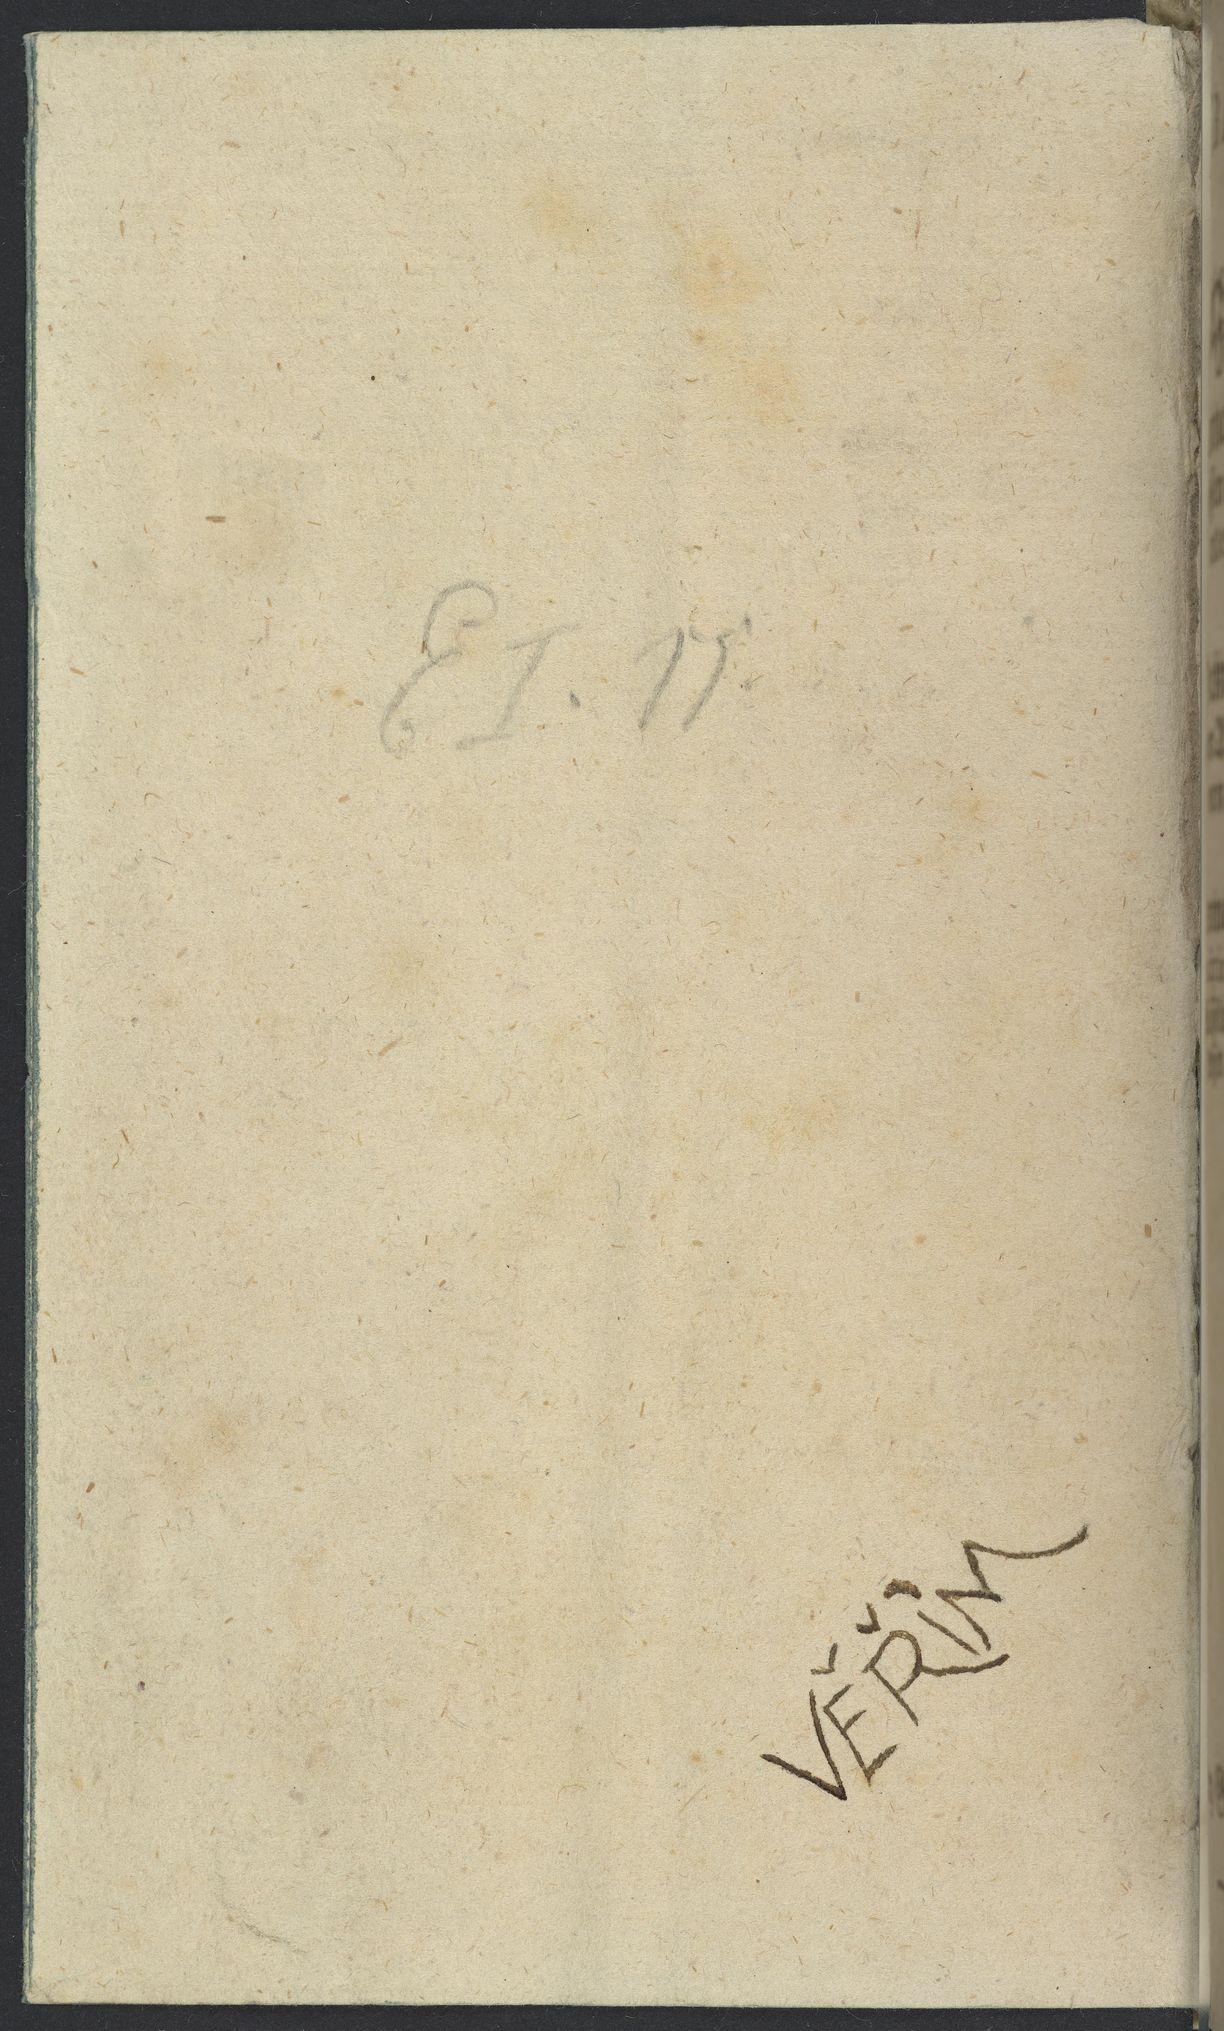 E I. 11.
VĚŘÍM